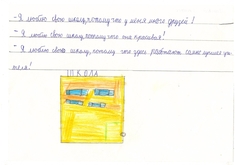 - Я люблю свою школу, потому что у меня много друзей!
- Я люблю свою школу, потому что она красивая!
- Я люблю свою школу, потому что здесь работают самые лучшие учи
теля!
ШКОЛА